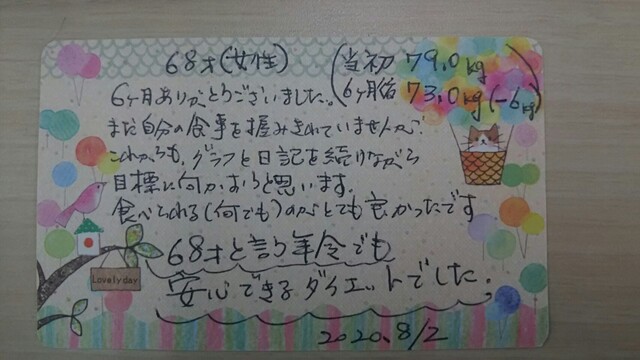 68才(女性)
(当初 79.0kg
6ヶ月後 73.0kg(-6kg))
6ヶ月ありがとうございました。
まだ自分の食事を掴みきれていませんが
これからも、グラフと日記を続けながら
目標に向かおうと思います。
食べられる(何でも)のがとても良かったです
68才と言う年令でも
安心できるダイエットでした。
2020.8/2
Lovely day